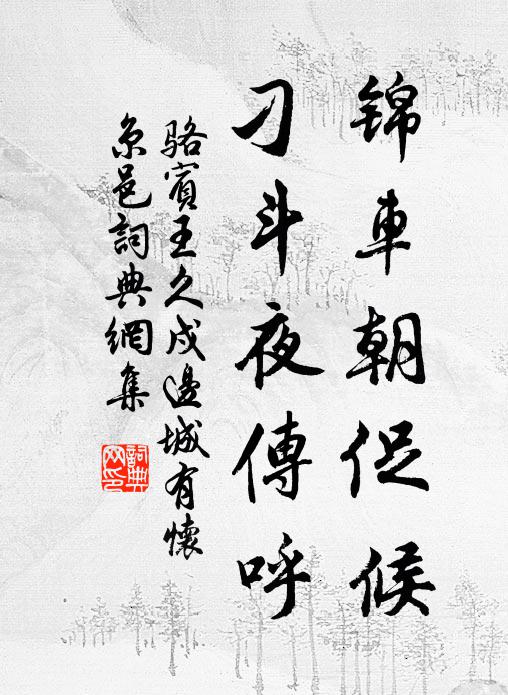 錦車朝促候
刁斗夜傳呼
駱賓王久戍邊城有懷
京邑詞典網集
詞典
网印